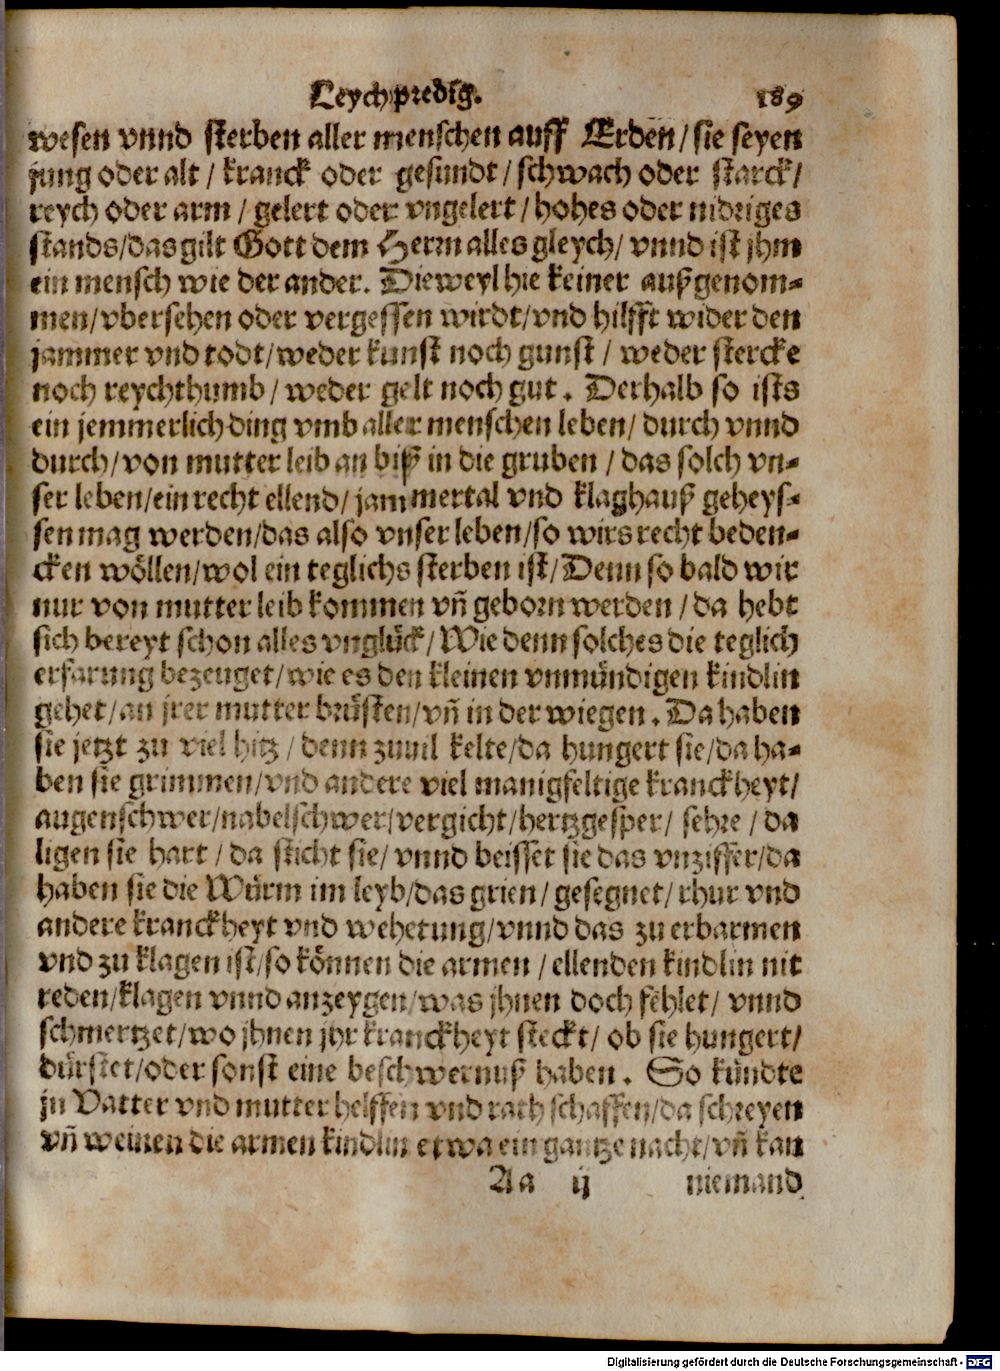 Leychpredig. 189
wesen vnnd sterben aller menschen auff Erden/ sie seyen
jung oder alt / kranck oder gesundt / schwach oder starck/
reych oder arm / gelert oder vngelert / hohes oder nidriges
stands/das gilt Gott dem Herrn alles gleych/ vnnd ist jhm
ein mensch wie der ander. Dieweyl hie keiner außgenom-
men/vbersehen oder vergessen wirdt/vnd hilfft wider den
jammer vnd todt/weder kunst noch gunst / weder stercke
noch reychthumb / weder gelt noch gut. Derhalb so ists
ein jemmerlich ding vmb aller menschen leben/ durch vnnd
durch/von mutter leib an biß in die gruben / das solch vn-
ser leben/ein recht ellend/ jammertal vnd klaghauß geheys-
sen mag werden/das also vnser leben/so wirs recht beden-
cken wöllen/wol ein teglichs sterben ist/Denn so bald wir
nur von mutter leib kommen vñ geborn werden / da hebt
sich bereyt schon alles vnglück/Wie denn solches die teglich
erfarung bezeuget/wie es den kleinen vnmündigen kindlin
gehet/an jrer mutter brüsten/vñ in der wiegen. Da haben
sie jetzt zu viel hitz / denn zuuil kelte/da hungert sie/da ha-
ben sie grimmen/vnd andere viel manigfeltige kranckheyt/
augenschwer/nabelschwer/vergicht/hertzgesper/ sehre / da
ligen sie hart / da sticht sie/ vnnd beisset sie das vnziffer/da
haben sie die Würm im leyb/das grien/ gesegnet/ rhur vnd
andere kranckheyt vnd wehetung/vnnd das zu erbarmen
vnd zu klagen ist/so können die armen / ellenden kindlin nit
reden/klagen vnnd anzeygen/was jhnen doch fehlet/ vnnd
schmertzet/wo jhnen jhr kranckheyt steckt/ ob sie hungert/
dürstet/oder sonst eine beschwernuß haben. So kündte
jn Vatter vnd mutter helffen vnd rath schaffen/da schreyen
vñ weinen die armen kindlin etwa ein gantze nacht/vñ kan
Aa ij niemand
Digitalisierung gefördert durch die Deutsche Forschungsgemeinschaft - DFG